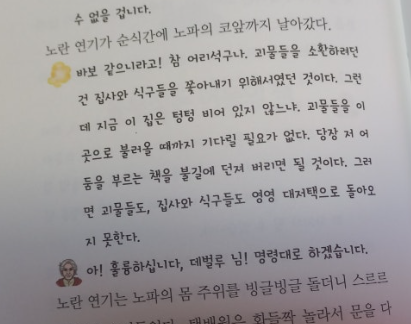 수 없을 겁니다.
노란 연기가 순식간에 노파의 코앞까지 날아갔다.
바보 같으니라고! 참 어리석구나. 괴물들을 소환하려던
건 집사와 식구들을 쫓아내기 위해서였던 것이다. 그런
데 지금 이 집은 텅텅 비어 있지 않느냐. 괴물들을 이
곳으로 불러올 때까지 기다릴 필요가 없다. 당장 저 어
둠을 부르는 책을 불길에 던져 버리면 될 것이다. 그러
면 괴물들도, 집사와 식구들도 영영 대저택으로 돌아오
지 못한다.
아! 훌륭하십니다, 데벌루 님! 명령대로 하겠습니다.
노란 연기는 노파의 몸 주위를 빙글빙글 돌더니 스르르
화들짝 놀라서 문을 다